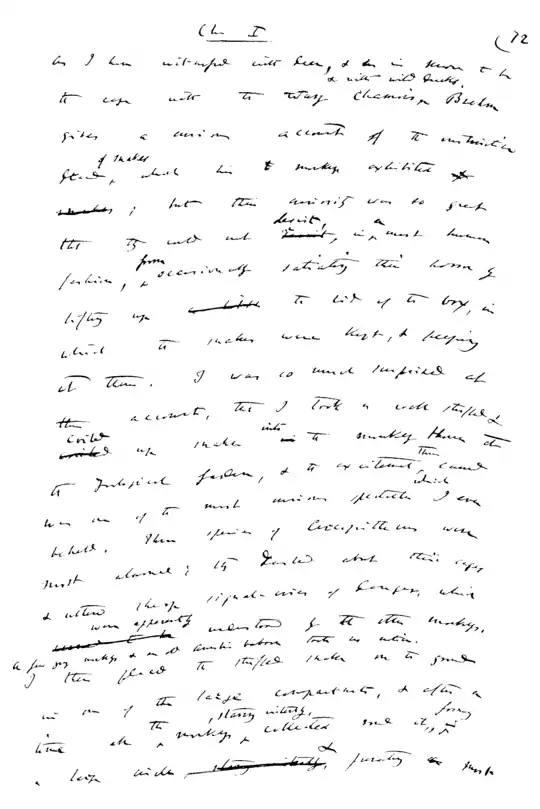 Ch. I (72
as I have witnessed with deer, & as is known to be
& with wild ducks.
the case with the wary Chamois, Brehm
gives a curious account of the instinctive
of snakes
dread, which his monkeys exhibited
snakes; but their curiosity was so great
desist, a
that they could not in most human
from
fashion, occasionally satiating their horror by
lifting up the lid of the box, in
which the snakes were kept, & peeping
at them. I was so much surprised at
this account, that I took a well stuffed &
coiled into
up snake in the monkey house at
thus
the Zoological Garden, & the excitement, caused
which
was one of the most curious spectacles I ever
beheld. Three species of Cercopithecus were
most alarmed; they dashed about their cages
& uttered sharp signal-cries of danger, which
were apparently
understood by the other monkeys.
A few young monkeys & one old Anubis baboon took no notice.
I then placed the stuffed snake on the ground
in one of the large compartments, & after a
staring intently, forming
time all the monkeys collected round it,
a large circle, & a most